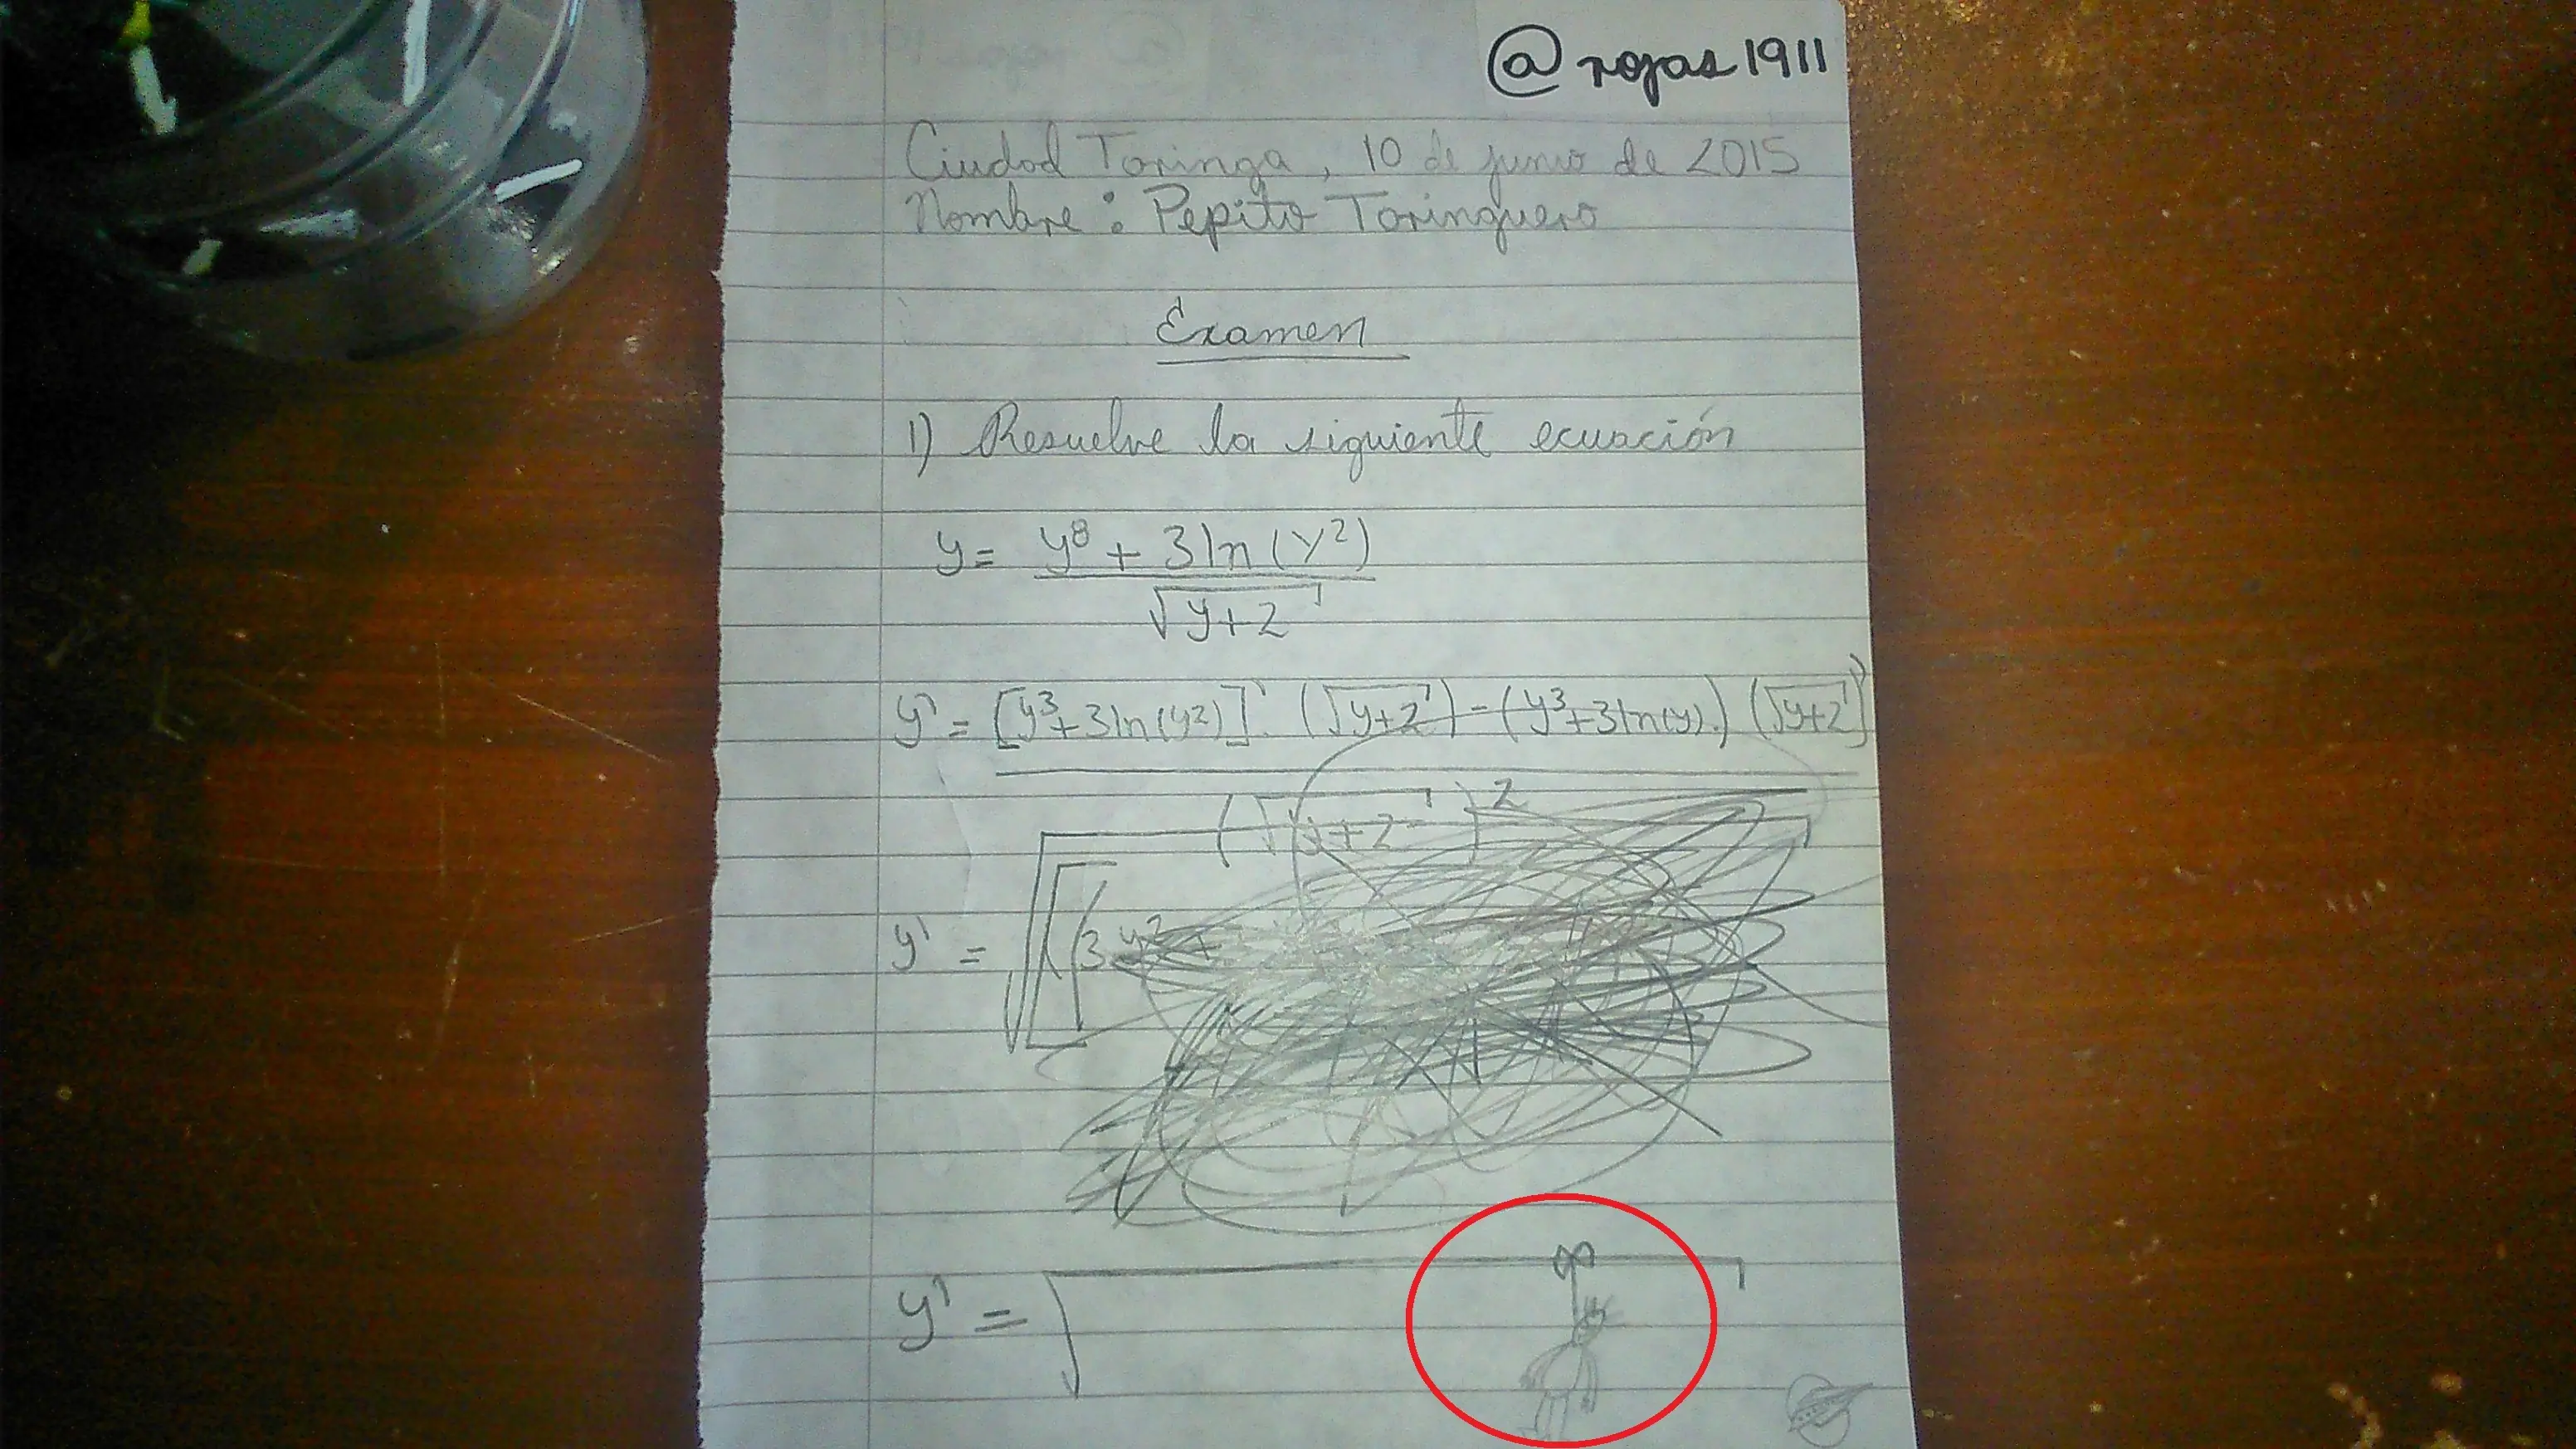 @rojas1911
Ciudad Toringa, 10 de junio de 2015
Nombre: Pepito Toringuero
Examen
1) Resuelve la siguiente ecuación
y = y⁸ + 3ln(y²)
√y+2
y' = [y³+3ln(y²)]' (√y+2) - (y³+3ln(y).) (√y+2)'
(√y+2)²
y' = √[(3y²+
y' = √